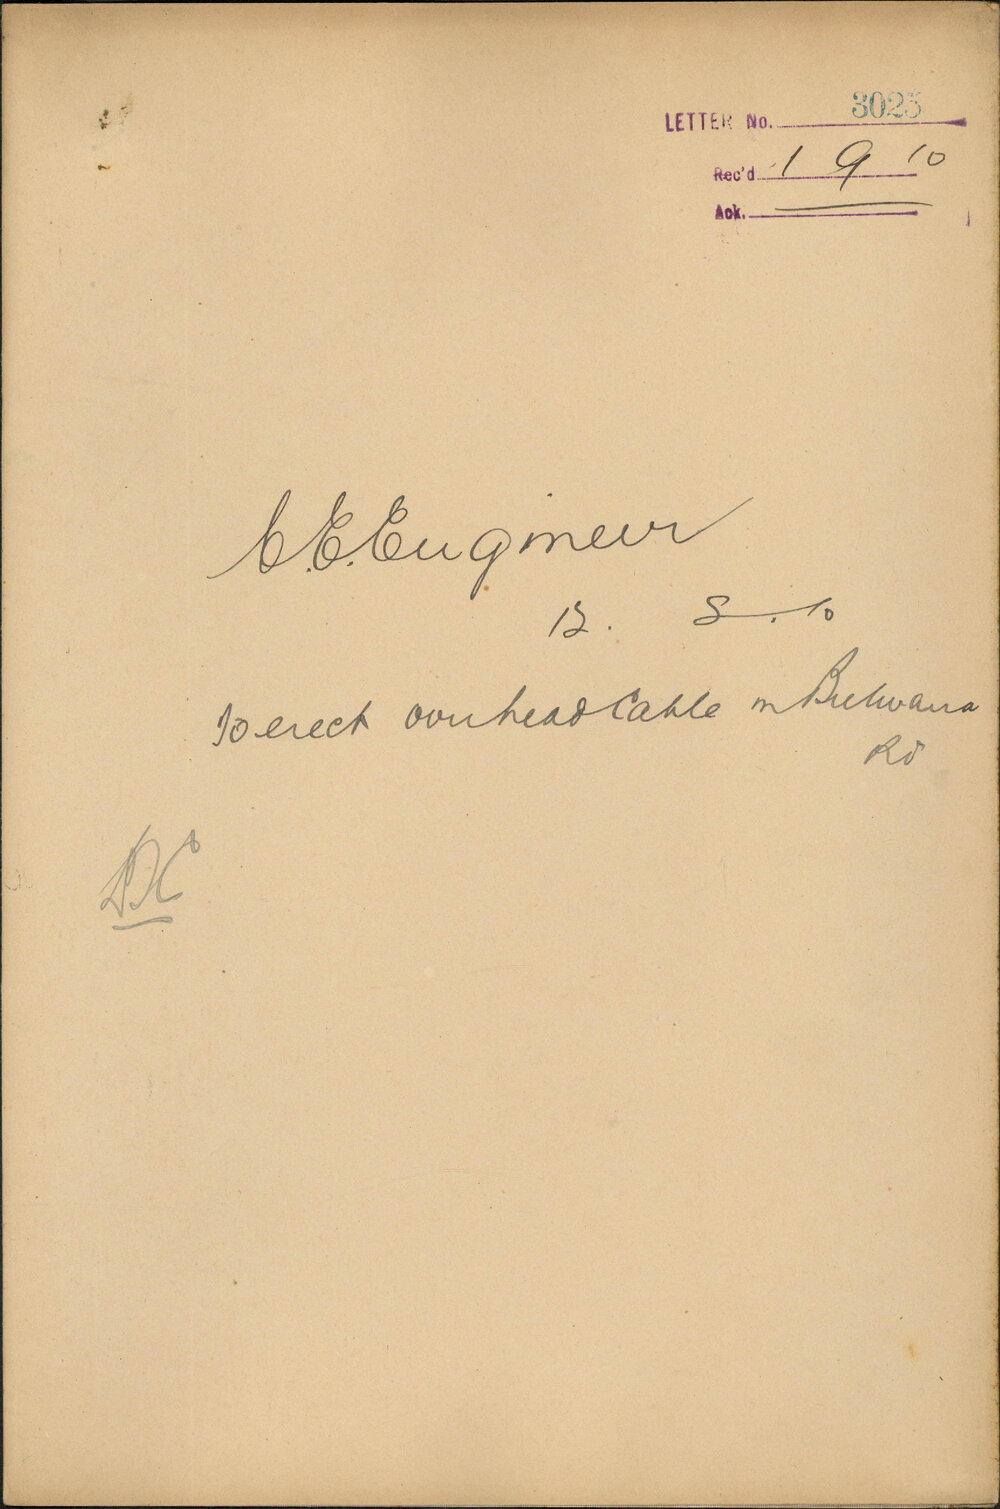 LETTER No. 3025
Rec'd 1 9 10
Ack.
C.E. Engineer
13. 8. 10
To erect overhead Cable in Bulwara
Rd